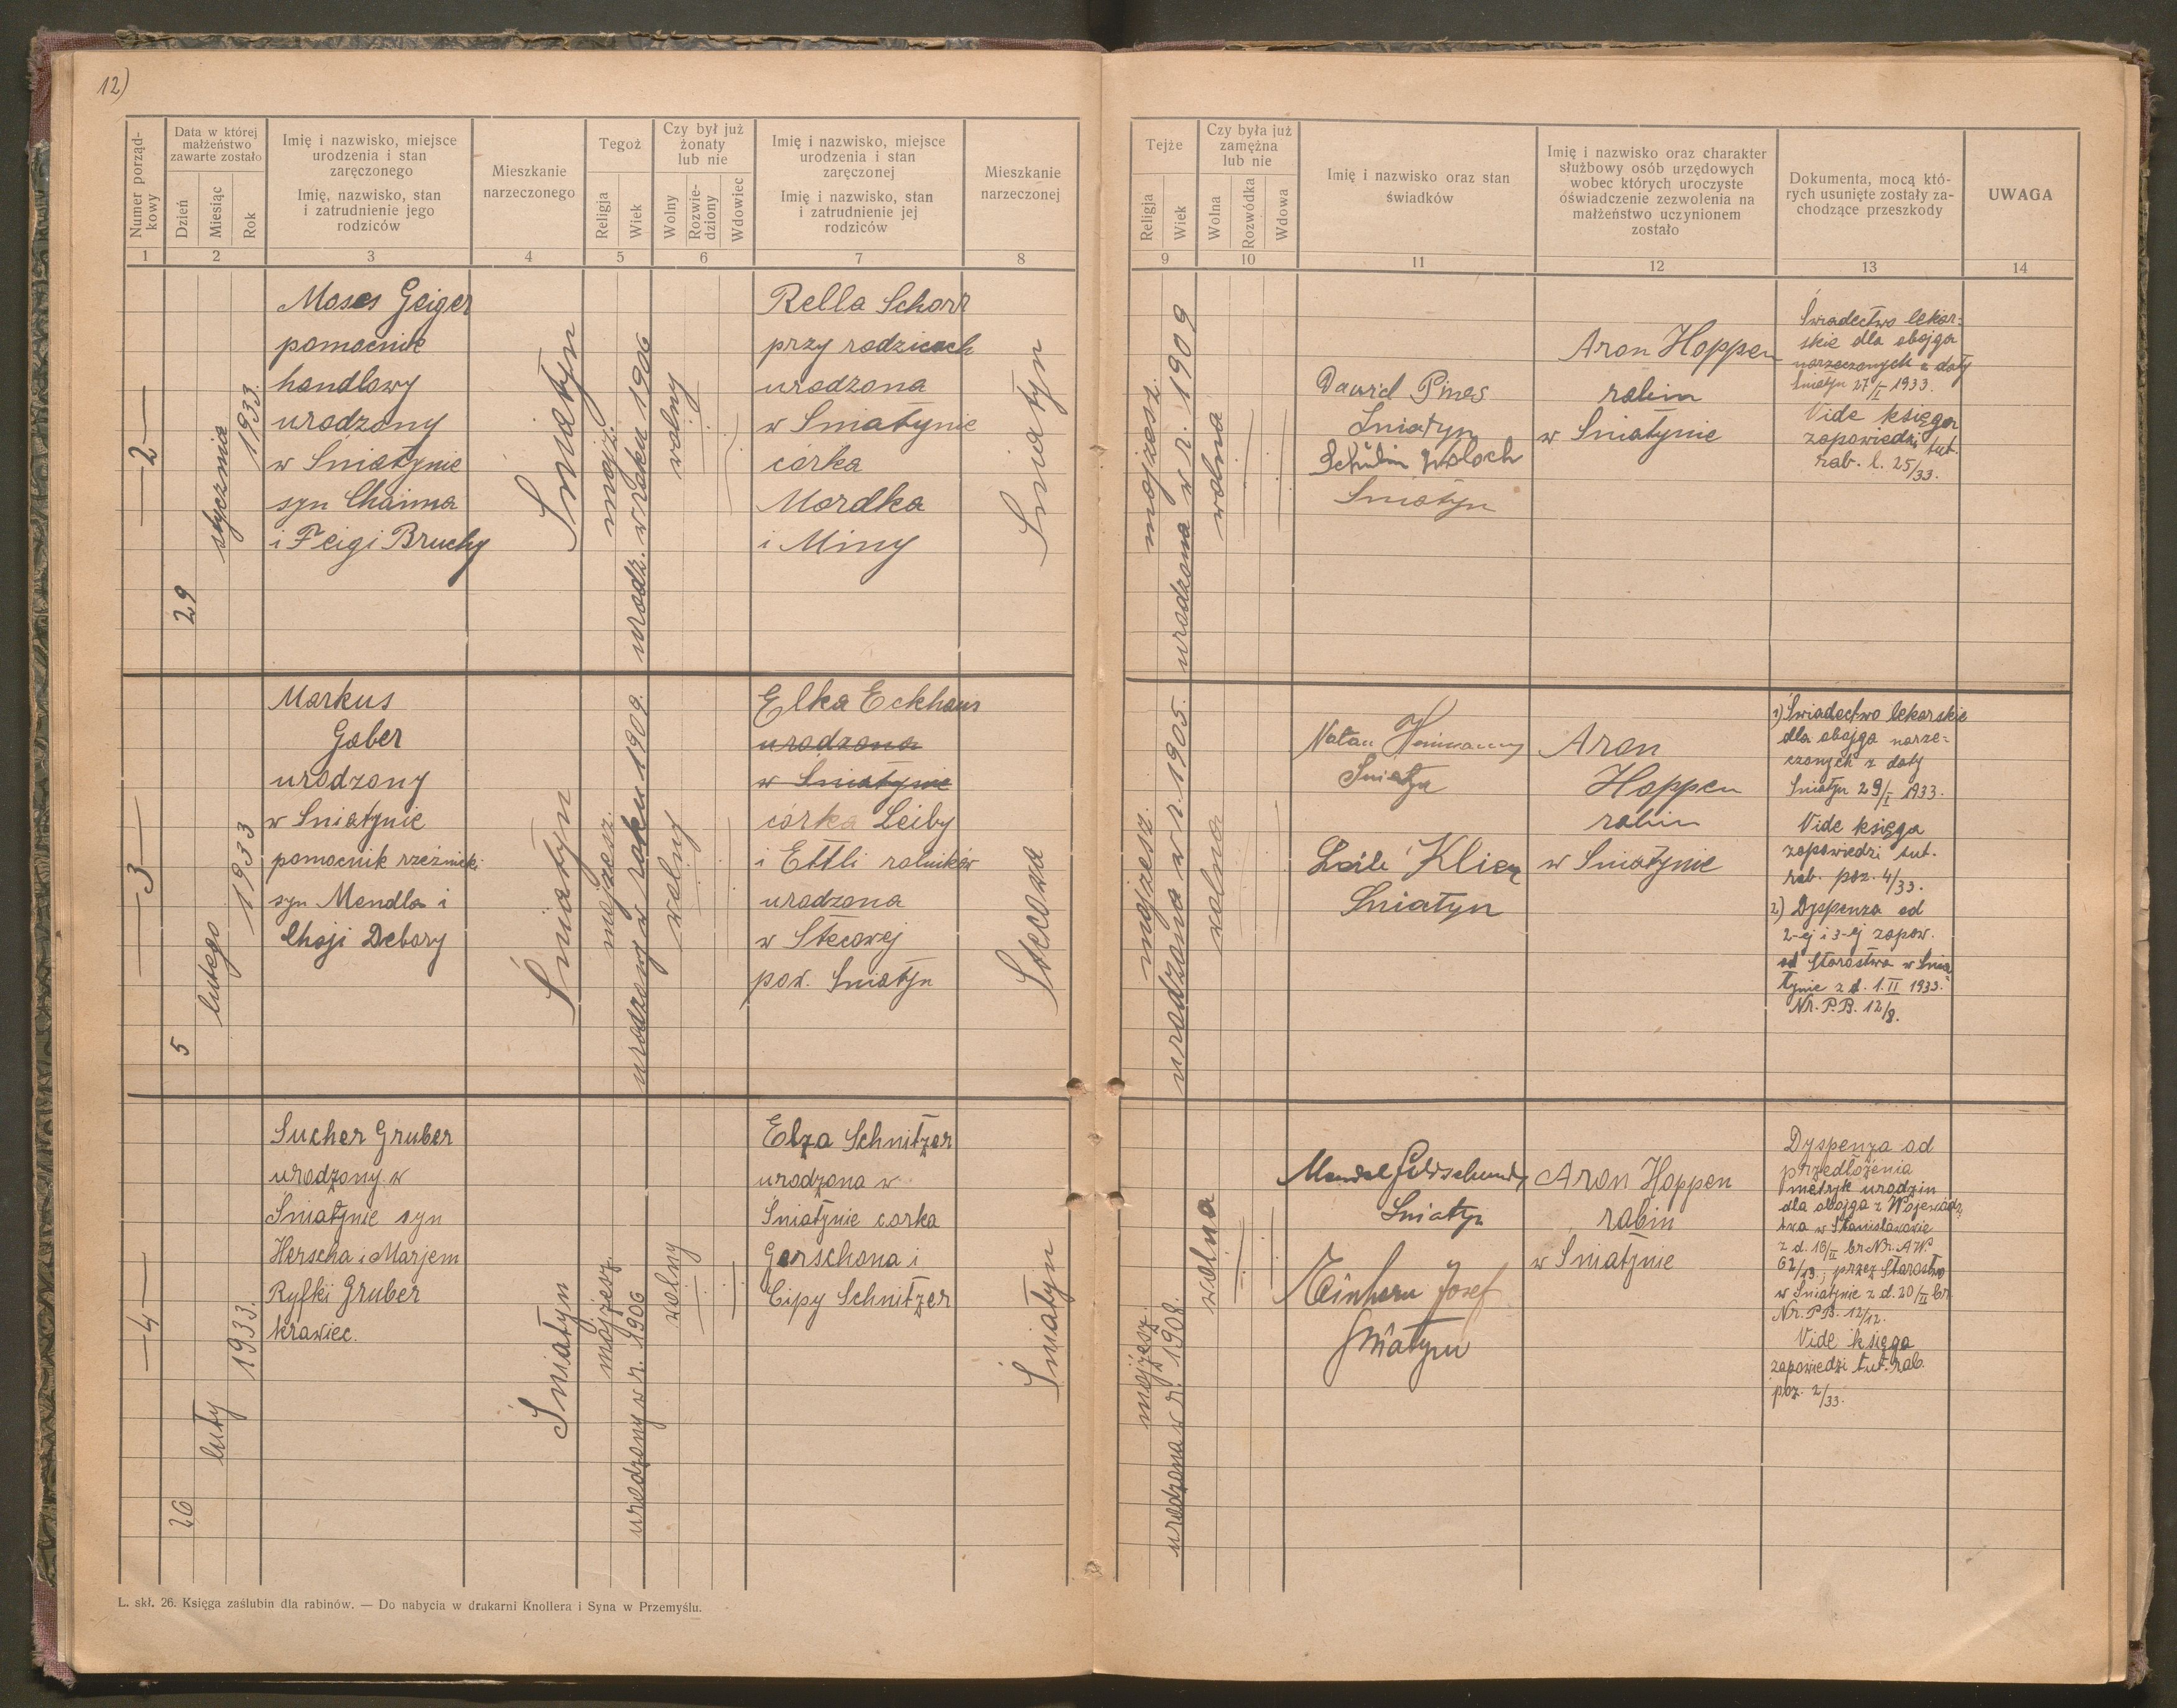 12)
Numer porząd-
kowy
Data w której
małżeństwo
zawarte zostało
Dzień
Miesiąc
Rok
Imię i nazwisko, miejsce
urodzenia i stan
zaręczonego
Imię, nazwisko, stan
i zatrudnienie jego
rodziców
Mieszkanie
narzeczonego
Tegoż
Religja
Wiek
Czy był już
żonaty
lub nie
Wolny
Rozwie-
dziony
Wdowiec
Imię i nazwisko, miejsce
urodzenia i stan
zaręczonej
Imię i nazwisko, stan
i zatrudnienie jej
rodziców
Mieszkanie
narzeczonej
Tejże
Religja
Wiek
Czy była już
zamężna
lub nie
Wolna
Rozwódka
Wdowa
Imię i nazwisko oraz stan
świadków
Imię i nazwisko oraz charakter
służbowy osób urzędowych
wobec których uroczyste
oświadczenie zezwolenia na
małżeństwo uczynionem
zostało
Dokumenta, mocą któ-
rych usunięte zostały za-
chodzące przeszkody
UWAGA
1
2
3
4
5
6
7
8
9
10
11
12
13
14
—2—
29
stycznia
1933.
Moses Geiger
pomocnik
handlowy
urodzony
w Śniatynie
syn Chaima
i Feigi Bruchy
Śniatyn
mojż.
urodz. w roku 1906
wolny
Rella Schorr
przy rodzicach
urodzona
w Śniatynie
córka
Mordka
i Miny
Śniatyn
mojżesz.
urodzona w r. 1909
wolna
Dawid Pines
Śniatyn
Śniatyn
Aron Hoppen
rabin
w Śniatynie
Świadectwo lekar=
skie dla obojga
narzeczonych z daty
Śniatyn 27/I 1933.
Vide księga
zapowiedzi tut.
rab. l. 25/33.
—3—
5
lutego
1933
Markus
Gaber
urodzony
w Śniatynie
pomocnik rzeźnick.
syn Mendla i
Chaji Debory
Śniatyn
mojżesz.
urodzony w roku 1909.
wolny
Elka Eckhaus
urodzona
w Śniatynie
córka Leiby
i Ettli rolników
urodzona
w Stecowej
pow. Śniatyn
Stecowa
mojżesz.
urodzona w r. 1905.
wolna
Natan
Śniatyn
Śniatyn
Aron
Hoppen
rabin
w Śniatynie
1) Świadectwo lekarskie
dla obojga narze=
czonych z daty
Śniatyn 29/I 1933.
Vide księga
zapowiedzi tut.
rab. poz. 4/33.
2) Dyspenza od
2-ej i 3-ej zapow.
od Starostwa w Śnia
tynie z d. 1.II 1933.
Nr. P.B. 12/8.
—4—
26
luty
1933.
Sucher Gruber
urodzony w
Śniatynie syn
Herscha i Marjem
Ryfki Gruber
krawiec.
Śniatyn
mojżesz.
urodzony w r. 1906
wolny
Elza Schnitzer
urodzona w
Śniatynie corka
Gerschona i
Cipy Schnitzer
Śniatyn
mojżesz.
urodzona w r. 1908.
wolna
Śniatyn
Einhorn Josef
Śniatyn
Aron Hoppen
rabin
w Śniatynie
Dyspenza od
przedłożenia
metryk urodzin
dla obojga z Wojewódz
twa w Stanisławowie
z d. 18/II br Nr. AW.
62/13; przez Starostwo
w Śniatynie z d. 20/II br.
Nr. P.B. 12/12.
Vide księga
zapowiedzi tut. rab.
poz. 2/33.
L. skł. 26. Księga zaślubin dla rabinów. — Do nabycia w drukarni Knollera i Syna w Przemyślu.